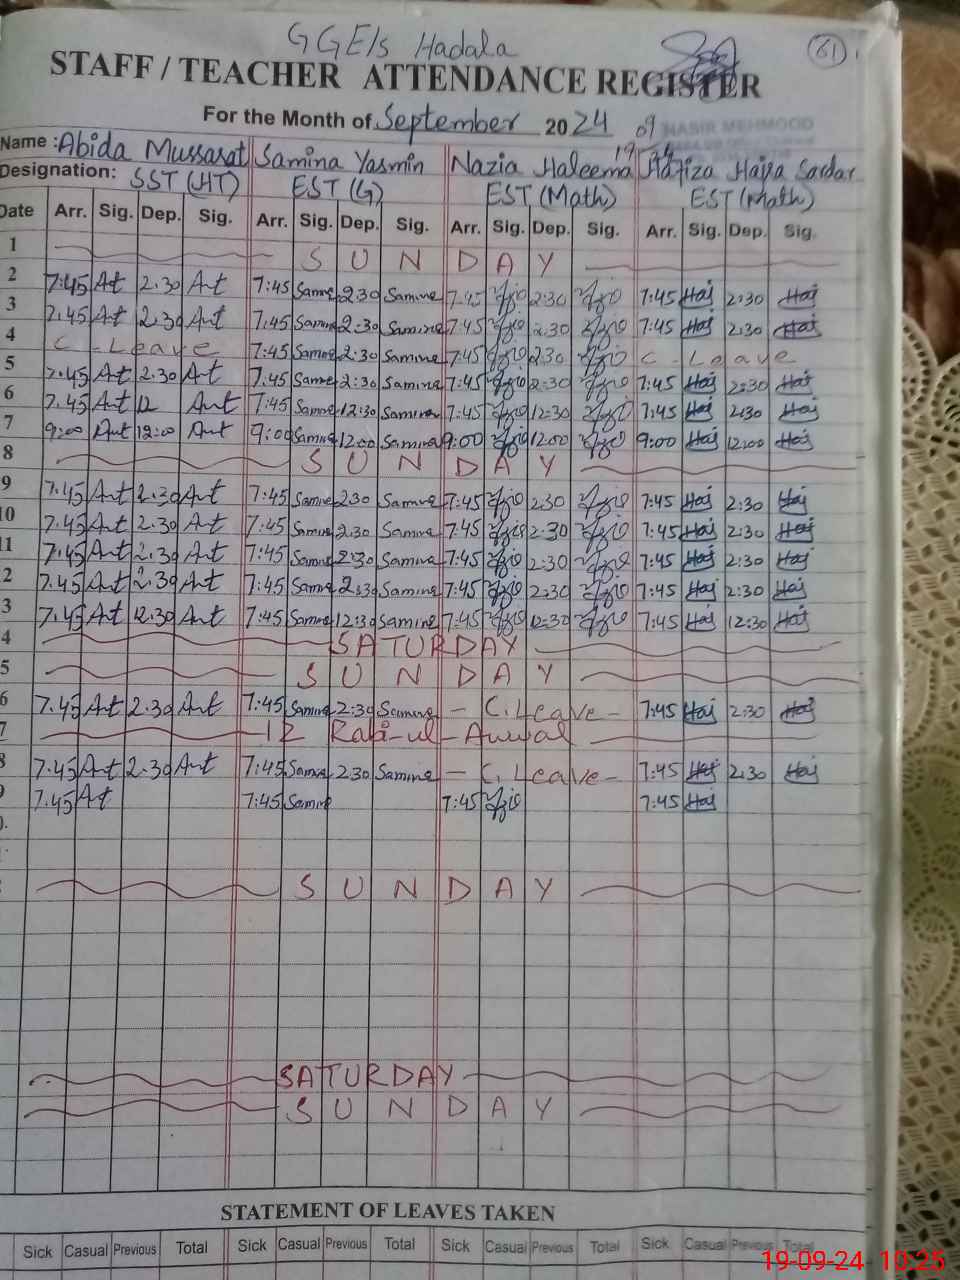 GGE/s Hadala
61
STAFF / TEACHER ATTENDANCE REGISTER
For the Month of September 2024
NASIR MEHMOOD
Name : Abida Mussarat Samina Yasmin Nazia Haleema Hafiza Haiya Sardar
Designation: SST (HT) EST (G) EST (Math) EST (Math)
Date Arr. Sig. Dep. Sig. Arr. Sig. Dep. Sig. Arr. Sig. Dep. Sig. Arr. Sig. Dep. Sig.
1 SUNDAY
2 7:45 Ant 2.30 Ant 7:45 Samina 2:30 Samina 7:45 2:30 7:45 Haj 2:30 Haj
3 7.45 Ant 2.30 Ant 7:45 Samina 2:30 Samina 7:45 2:30 7:45 Haj 2:30 Haj
4 C-Leave 7:45 Samina 2:30 Samina 7:45 2:30 C-Leave
5 7.45 Ant 2.30 Ant 7:45 Samina 2:30 Samina 7:45 2:30 7:45 Haj 2:30 Haj
6 7.45 Ant 12 Ant 7:45 Samina 12:30 Samina 7:45 12:30 7:45 Haj 2:30 Haj
7 9:00 Ant 12:00 Ant 9:00 Samina 12:00 Samina 9:00 12:00 9:00 Haj 12:00 Haj
8 SUNDAY
9 7.45 Ant 2.30 Ant 7:45 Samina 2:30 Samina 7:45 2:30 7:45 Haj 2:30 Haj
10 7.45 Ant 2.30 Ant 7:45 Samina 2:30 Samina 7:45 2:30 7:45 Haj 2:30 Haj
11 7.45 Ant 2.30 Ant 7:45 Samina 2:30 Samina 7:45 2:30 7:45 Haj 2:30 Haj
2 7.45 Ant 2.30 Ant 7:45 Samina 2:30 Samina 7:45 2:30 7:45 Haj 2:30 Haj
3 7.45 Ant 12.30 Ant 7:45 Samina 12:30 Samina 7:45 12:30 7:45 Haj 12:30 Haj
4 SATURDAY
5 SUNDAY
6 7.45 Ant 2.30 Ant 7:45 Samina 2:30 Samina - C.Leave - 7:45 Haj 2:30 Haj
7 12 Rabi-ul-Awwal
8 7.45 Ant 2.30 Ant 7:45 Samina 2:30 Samina - C.Leave - 7:45 Haj 2:30 Haj
9 7.45 Ant 7:45 Samina 7:45 7:45 Haj
0.
SUNDAY
SATURDAY
SUNDAY
STATEMENT OF LEAVES TAKEN
Sick Casual Previous Total Sick Casual Previous Total Sick Casual Previous Total Sick Casual Previous Total
19-09-24 10:25